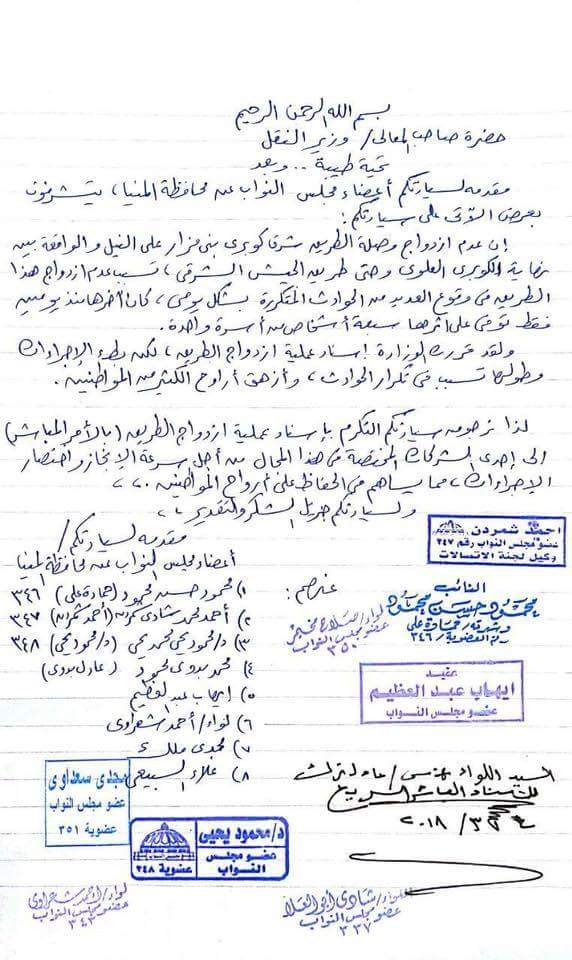 بسم الله الرحمن الرحيم
حضرة صاحب المعالى / وزير النقل
تحية طيبة .. وبعد
مقدمه لسيادتكم أعضاء مجلس النواب عن محافظة المنيا، يتشرفون
بعرض الآتى على سيادتكم:
إن عدم ازدواج وصلة الطريق شرق كوبرى بنى مزار على النيل والواقعة بين
نهاية الكوبرى العلوى وحتى طريق الجيش الشرقى، تسبب عدم ازدواج هذا
الطريق فى وقوع العديد من الحوادث المتكررة بشكل يومى، كان آخرها منذ يومين
فقط توفى على اثرها سبعة أشخاص من أسرة واحدة.
ولقد قررت الوزارة إسناد عملية ازدواج الطريق، لكن بطء الإجراءات
وطولها تسبب فى تكرار الحوادث، وأزهق أرواح الكثير من المواطنين.
لذا نرجو من سيادتكم التكرم بإسناد عملية ازدواج الطريق (بالأمر المباشر)
الى إحدى الشركات المختصة فى هذا المجال من أجل سرعة الإنجاز واختصار
الإجراءات، مما يساهم فى الحفاظ على أرواح المواطنين،،
ولسيادتكم جزيل الشكر والتقدير،،
مقدمه لسيادتكم /
أعضاء مجلس النواب عن محافظة المنيا
عنهم:
١) محمود حسن محمود (حمادة على) ٣٤٦
٢) أحمد محمد شادى شمردن (أحمد شمردن) ٣٤٧
٣) د/محمود يحيى محمد يحيى (د/محمود يحيى) ٣٤٨
٤) محمد بدوى (عادل بدوى)
٥) إيهاب عبد العظيم
٦) لواء/ أحمد شعراوى
٧) مجدى ملك
٨) علاء السبيعى
احمد شمردن
عضو مجلس النواب رقم ٣٤٧
وكيل لجنة الاتصالات
النائب
محمود حسن محمود
وشهرته / حمادة على
رقم العضوية / ٣٤٦
لواء/ صلاح
عضو مجلس النواب
٣٥٠
عقيد
إيهاب عبد العظيم
عضو مجلس النواب
السيد اللواء مهندس / عادل ترك
٢٠١٨/٣/
مجدى سعداوى
عضو مجلس النواب
عضوية ٣٥١
د/محمود يحيى
عضو مجلس
النواب
عضوية ٣٤٨
لواء/ أحمد شعراوى
عضو مجلس النواب
٣٤٣
اللواء/ شادى أبو العلا
عضو مجلس النواب
٣٣٧